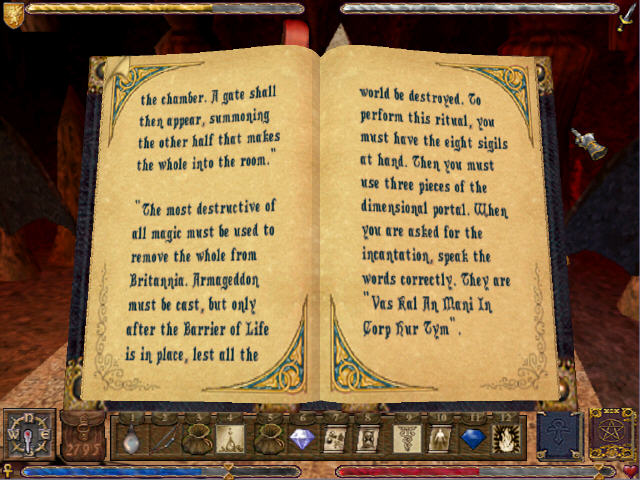 the chamber. A gate shall
then appear, summoning
the other half that makes
the whole into the room."
"The most destructive of
all magic must be used to
remove the whole from
Britannia. Armageddon
must be cast, but only
after the Barrier of Life
is in place, lest all the
world be destroyed. To
perform this ritual, you
must have the eight sigils
at hand. Then you must
use three pieces of the
dimensional portal. When
you are asked for the
incantation, speak the
words correctly. They are
"Vas Kal An Mani In
Corp Hur Tym".
N
W E
2795
1 2 3 4 5 6 7 8 9 10 11 12